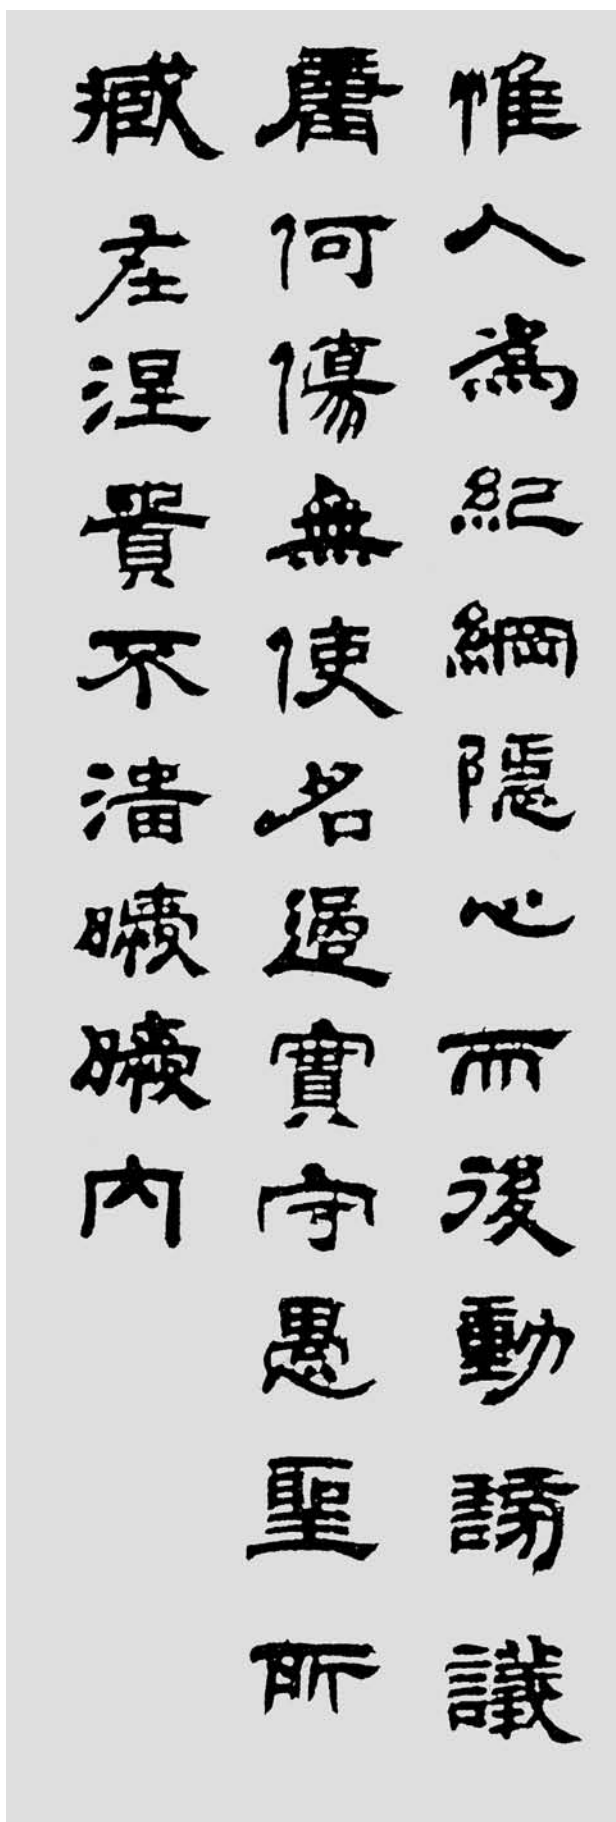 惟人爲紀綱隱心而後動謗議
庸何傷無使名過實守愚聖所
臧在涅貴不淄曖曖内